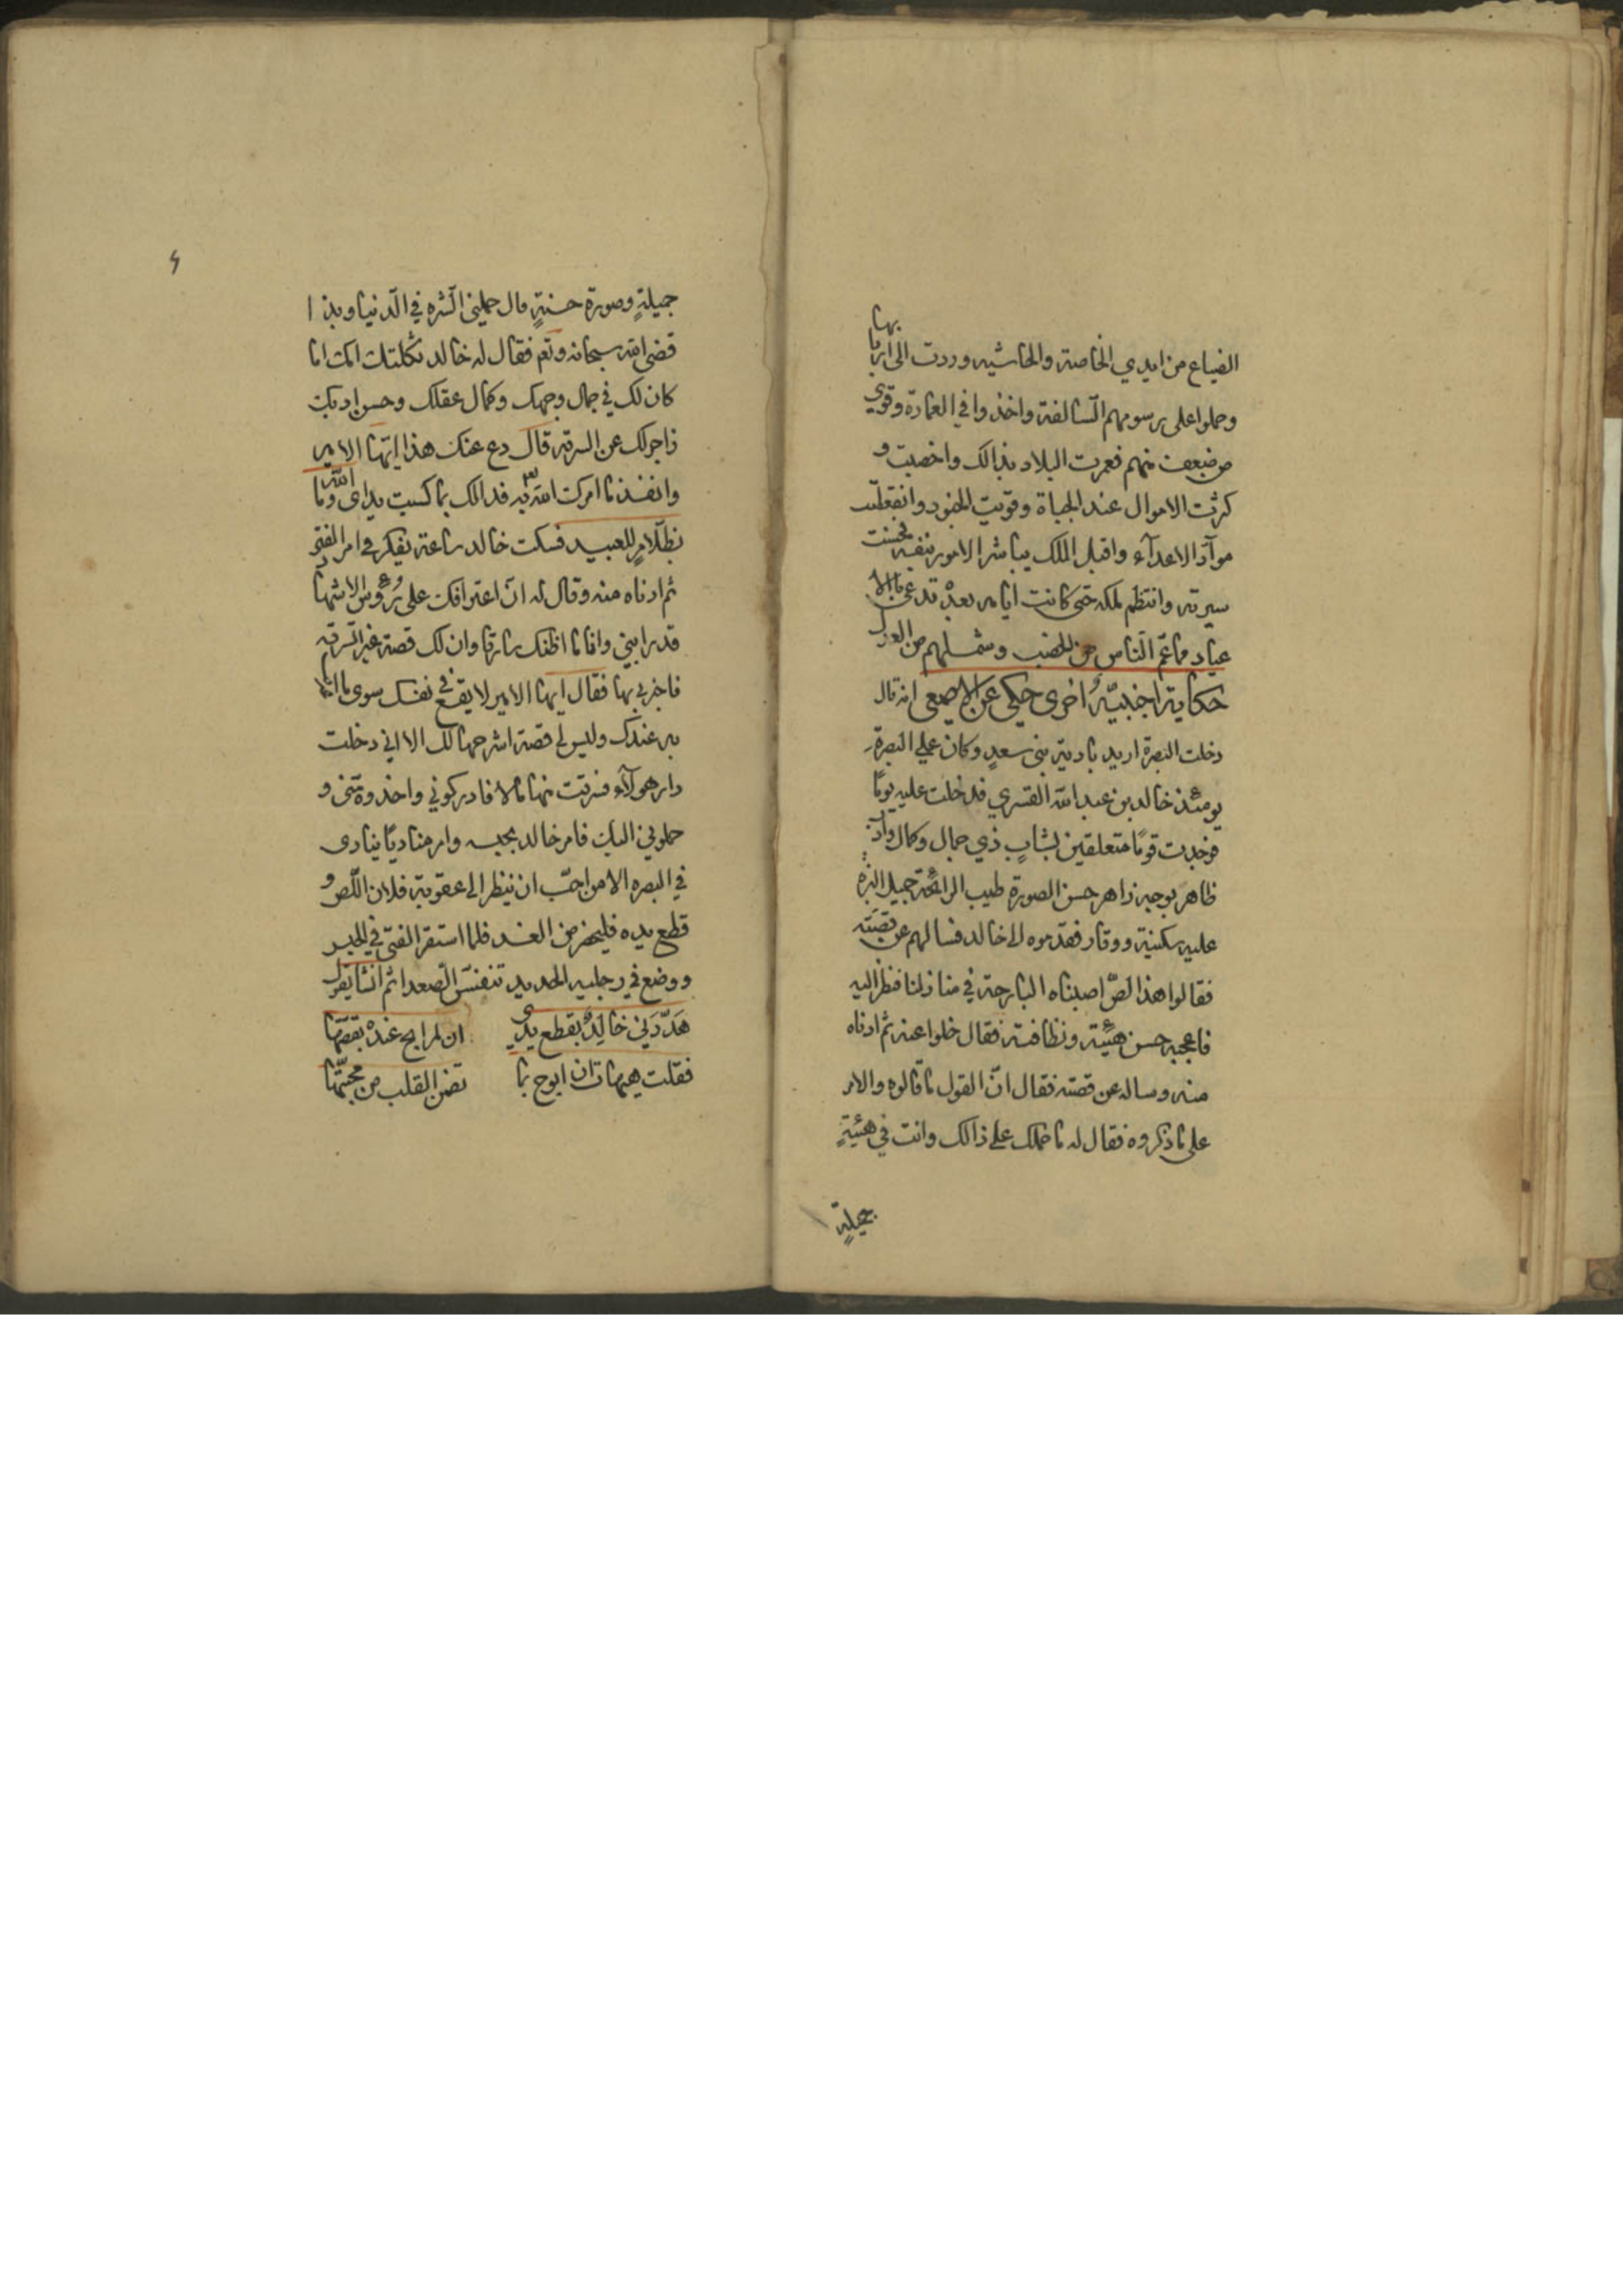 الضياع من ايدي الخاصة والحاشيه وردت الى اربابها
وحملوا على رسومهم السالفة واخذوا في العمارة وقوي
من ضعف منهم فعمرت البلاد بذالك واخصبت و
كثرت الاموال عند الجباة وقويت الجنود وانقطعت
موآدّ الاعدآء واقبل الملك يباشر الامور بنفسه فحسنت
سيرته وانتظم ملكه حتى كانت ايامه بعدُ تدعى بالا
عياد مما عم الناس من الخصب وشملهم من العدل
حكاية اجنبيّة اخرى حكي عن الاصمعي انه قال
دخلت البصرة اريد بادية بني سعدٍ وكان على البصرة
يومئذ خالد بن عبد الله القسري فدخلت عليه يومًا
فوجدت قومًا متعلقين بشابٍ ذي جمال وكمال وادب
ظاهر بوجه زاهر حسن الصورة طيب الرائحة جميل البزه
عليه سكينة ووقار فقدموه الى خالد فسالهم عن قصته
فقالوا هذا لصّ اصبناه البارحة في منازلنا فنظر اليه
فاعجبه حسن هيئته ونظافته فقال خلوا عنه ثم ادناه
منه وساله عن قصته فقال انّ القول ما قالوه والامر
على ما ذكروه فقال له ما حملك على ذالك وانت في هيئةٍ
جميلةٍ
٤
جميلةٍ وصورة حسنةٍ قال حملني الشره في الدنيا وبذا
قضى الله سبحانه وتعم فقال له خالد ثكلتك امك اما
كان لك في جمال وجهك وكمال عقلك وحسن ادبك
زاجر لك عن السرقه قال دع عنك هذا ايّها الامير
وانفذ ما امرك الله تع به فذالك بما كسبت يداى وما الله
بظلّامٍ للعبيد فسكت خالد ساعة يفكر في امر الفتى
ثم ادناه منه وقال له ان اعترافك على رُؤس الاشهاد
قد رابني وانا ما اظنك سارقا وان لك قصة غير السرقه
فاخبرني بها فقال ايها الامير لا يقع في نفسك سوى ما اعترفت
به عندك وليس لي قصة اشرحها لك الا اني دخلت
دار هولآء فسرقت منها مالا فادركوني واخذوه مني و
حملوني اليك فامر خالد بحبسه وامر مناديًا ينادى
في البصره الا من احبّ ان ينظر الى عقوبة فلان اللّص و
قطع يده فليحضر من الغد فلما استقر الفتى في الحبس
ووضع في رجليه الحديد تنفس الصعدا ثم انشا يقول
هَدّدَني خالِدٌ بقطع يدي ان لم ابح عندهُ بقصّتها
فقلت هيهات ان ابوح بما تضمن القلب من محبّتها